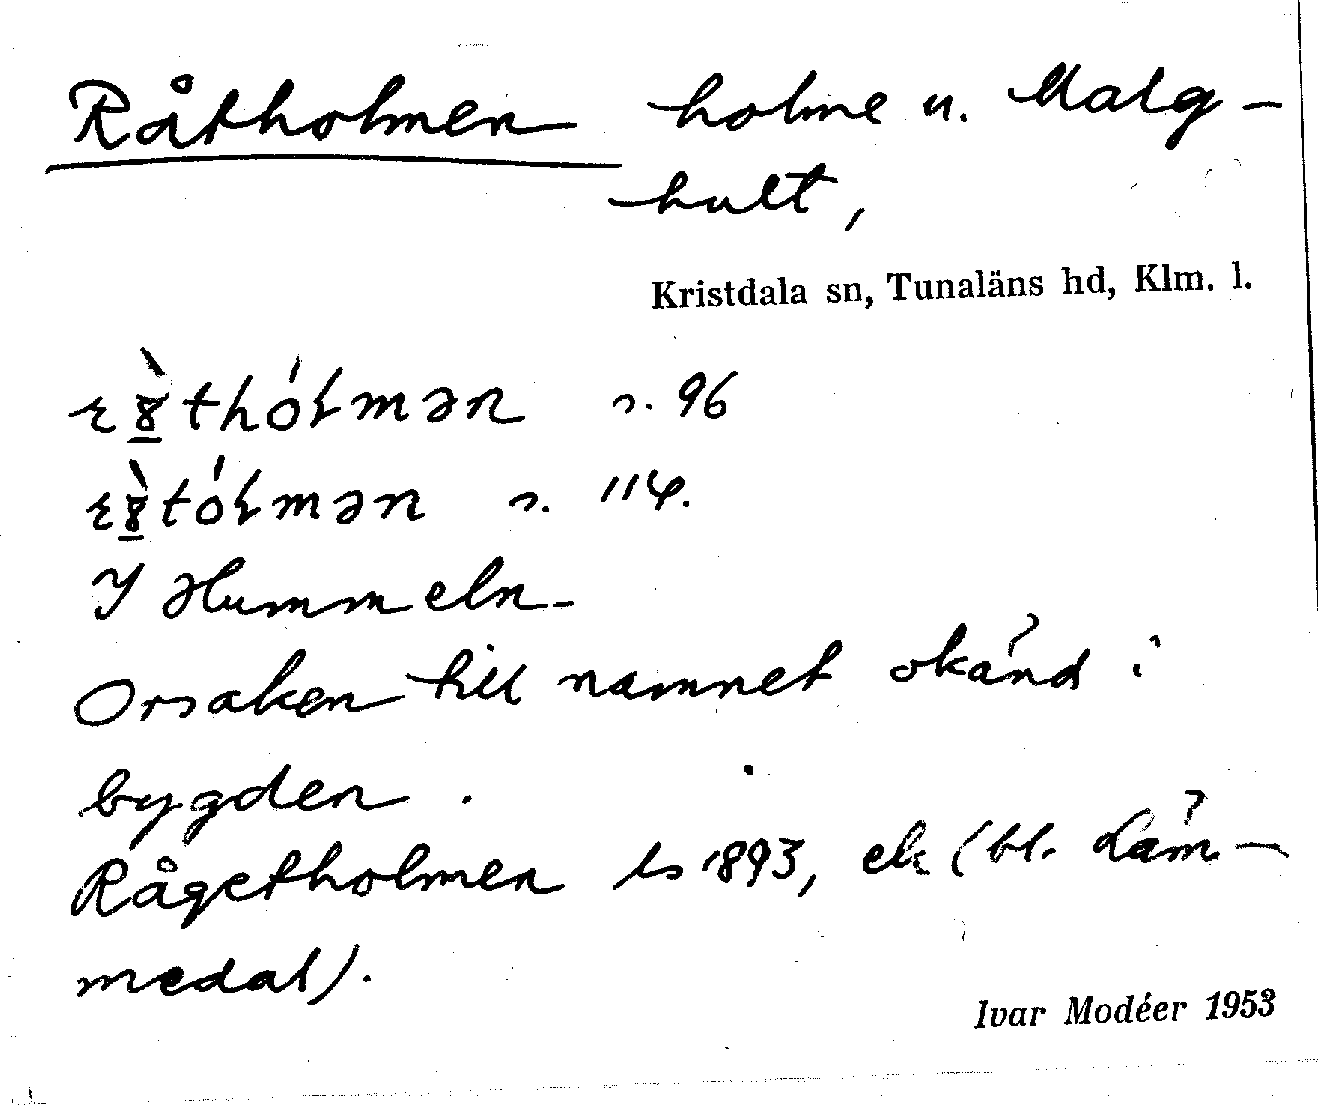 Råtholmen holme u. Malg-
hult,
Kristdala sn, Tunaläns hd, Klm. l.
s. 96
s. 114.
I Hummeln.
Orsaken till namnet okänd i
bygden.
Rågetholmen ls 1893, ek (bl. Läm-
medal).
Ivar Modéer 1953